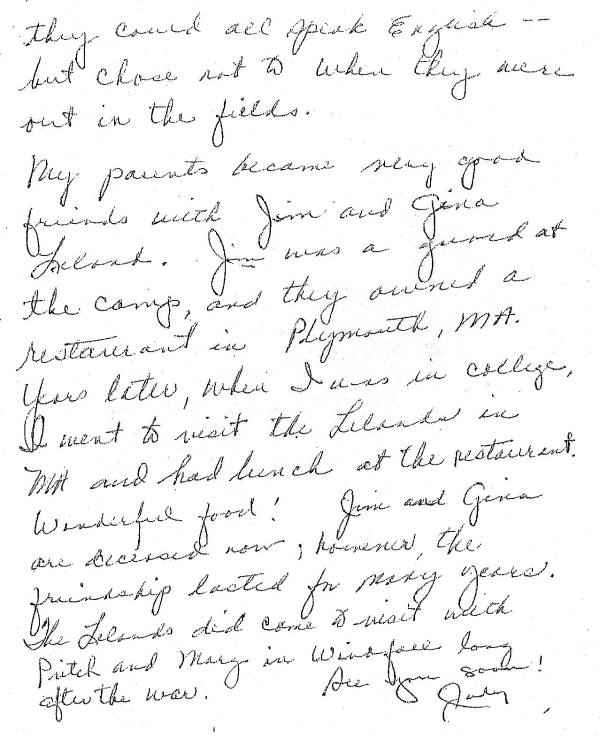 they could all speak English --
but chose not to when they were
out in the fields.
My parents became very good
friends with Jim and Gina
Leland. Jim was a guard at
the camp, and they owned a
restaurant in Plymouth, MA.
Years later, when I was in college,
I went to visit the Lelands in
MA and had lunch at the restaurant.
Wonderful food! Jim and Gina
are deceased now; however, the
friendship lasted for many years.
The Lelands did come to visit with
Pritch and Mary in Windfall long
after the war. See you soon!
Judy